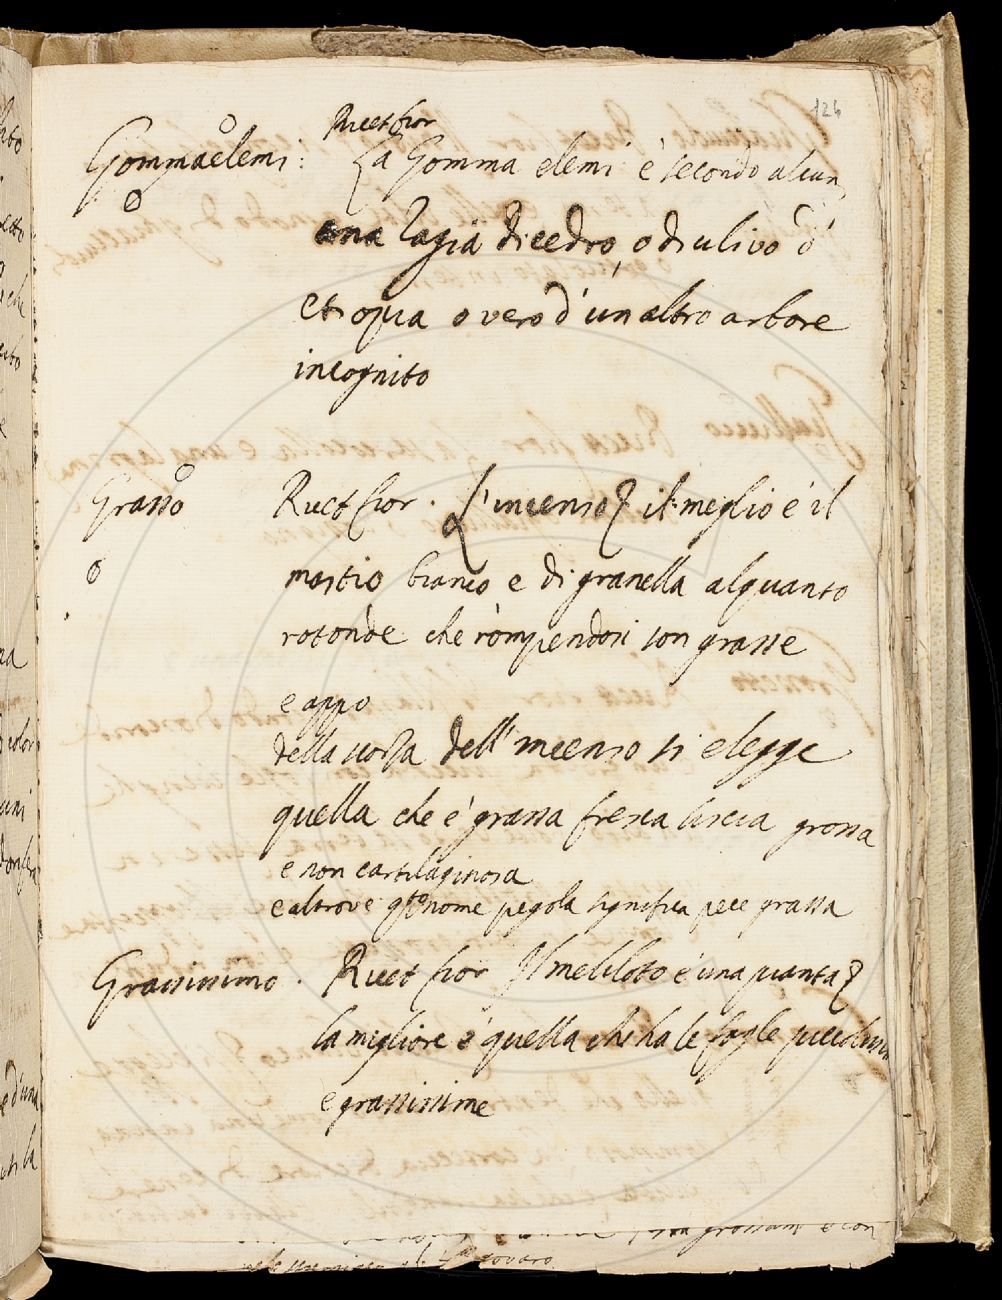 126
Ricet fior
Gommaelemi: La Gomma elemi è secondo alcun
una ragia di cedro, o di ulivo d'
etiopia o vero d'un altro arbore
incognito
Grasso Ricet fior. L'incenso il meglio è il
mastio bianco e di granella alquanto
rotonde che rompendosi son grasse
e appo
della scorza dell'incenso si elegge
quella che è grassa fresca liscia grossa
e non cartilaginosa
e altrove qto nome pegola significa pece grassa
Grassissimo. Ricet fior Il meliloto è una pianta
la migliore è quella che ha le foglie piccoline
e grassissime